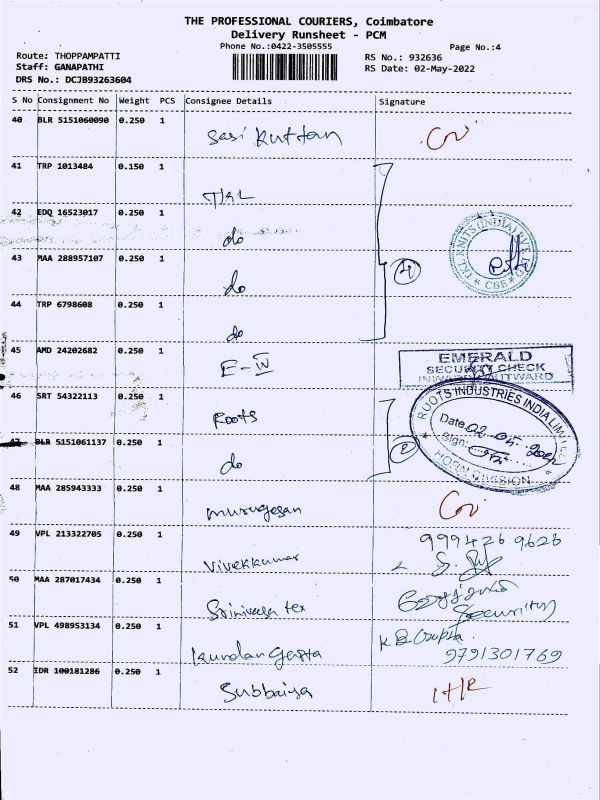 THE PROFESSIONAL COURIERS, Coimbatore
Delivery Runsheet - PCM
Phone No.:0422-3505555
Page No.:4
Route: THOPPAMPATTI
RS No.: 932636
Staff: GANAPATHI
RS Date: 02-May-2022
DRS No.: DCJB93263604
S No Consignment No Weight PCS Consignee Details Signature
40 BLR 5151060090 0.250 1
Sasi Kuttan
41 TRP 1013484 0.150 1
TKL
42 EDQ 16523017 0.250 1
do
TKL KNITS (INDIA) PVT LTD
* CBE *
43 MAA 288957107 0.250 1
do
4
44 TRP 6798608 0.250 1
do
45 AMD 24202682 0.250 1
E-W
EMERALD
SECURITY CHECK
INWARD/OUTWARD
46 SRT 54322113 0.250 1
Roots
2
ROOTS INDUSTRIES INDIA LIMITED
Date: 02.05.2022
Sign:
HORN DIVISION
47 BLR 5151061137 0.250 1
do
48 MAA 285943333 0.250 1
murugesan
49 VPL 213322705 0.250 1
999426 9626
Vivekkumar
50 MAA 287017434 0.250 1
Srinivasa tex
Security
51 VPL 498953134 0.250 1
Kundan Gupta
K.B. Gupta
9791301769
52 IDR 100181286 0.250 1
Subbaiya